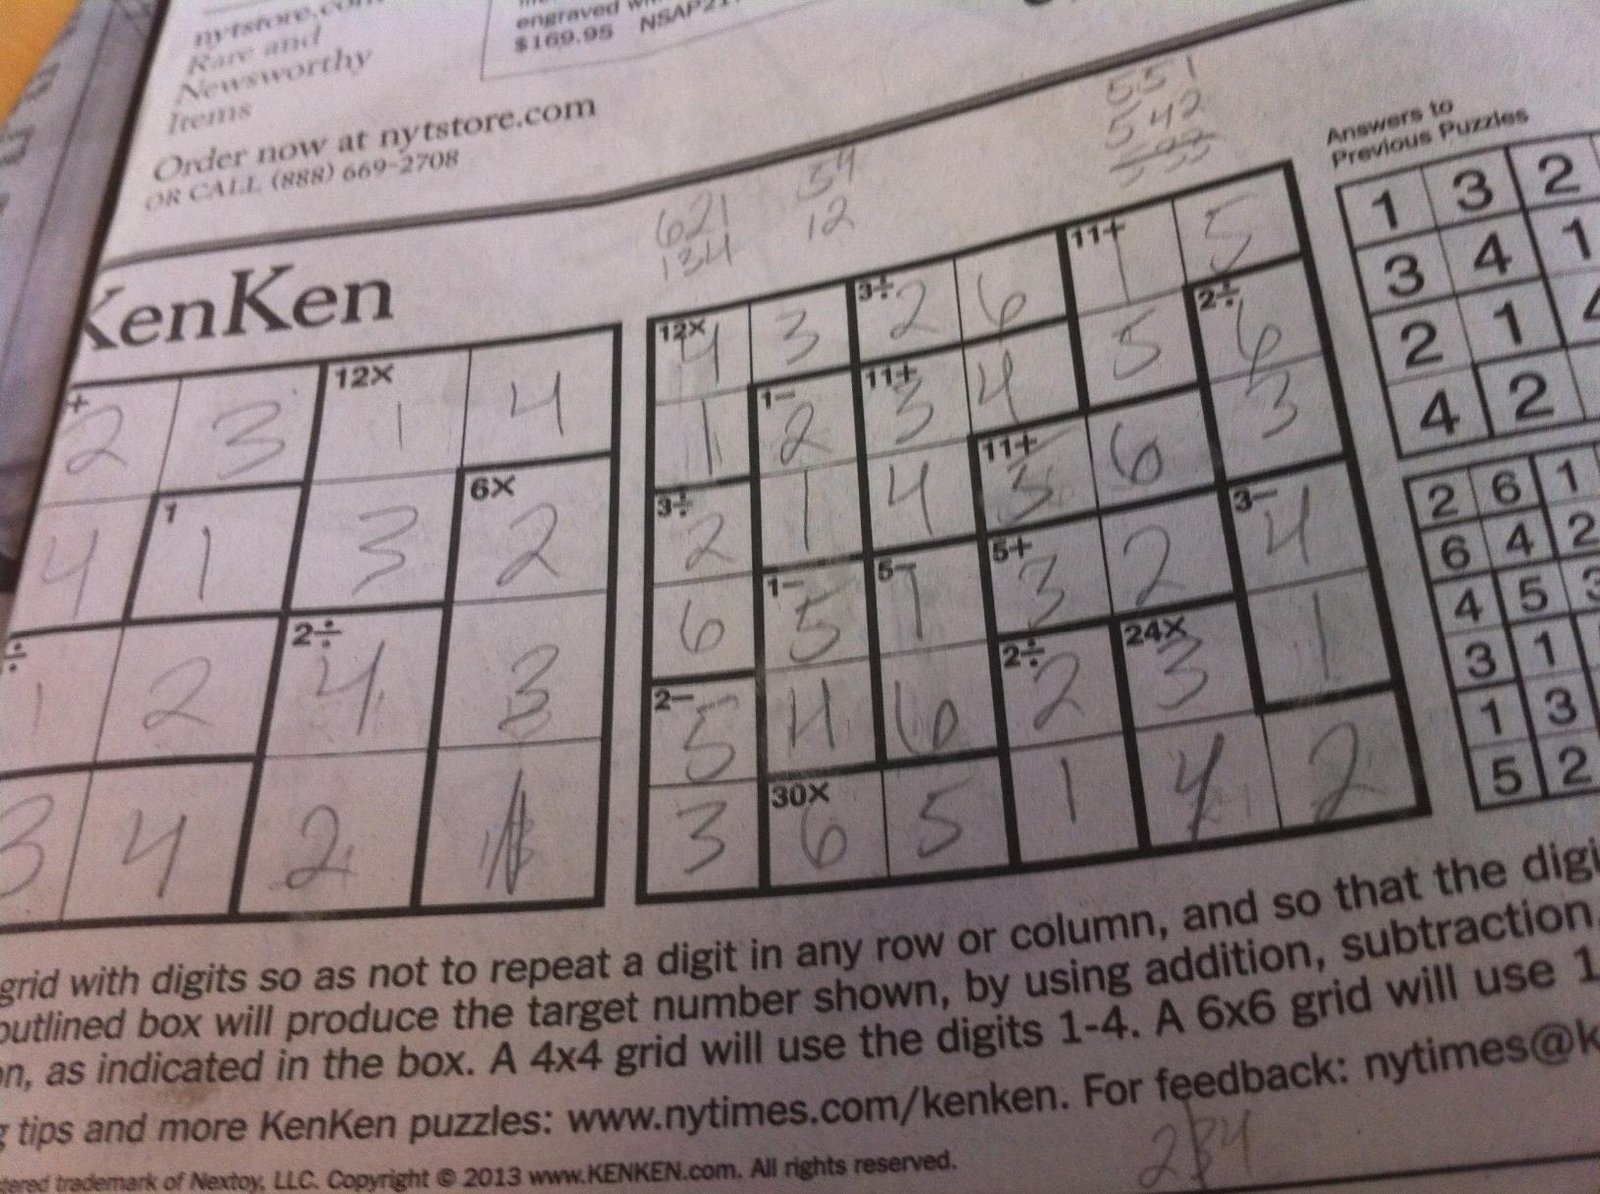 nytstore.com
Rare and
Newsworthy
Items
engraved
$169.95 NSAP21
Order now at nytstore.com
OR CALL (888) 669-2708
KenKen
621
134
54
12
551
542
Answers to
Previous Puzzles
+ 12×
2 3 1 4
1 6×
4 1 3 2
÷ 2÷
1 2 4 3
3 4 2 1
12× 3÷ 11+
4 3 2 6 1 5
1- 11+ 2÷
1 2 3 4 5 6
3÷ 11+
2 1 4 5 6 3
1- 5- 5+ 3-
6 5 1 3 2 4
2- 2÷ 24×
5 4 6 2 3 1
30×
3 6 5 1 4 2
1 3 2
3 4 1
2 1 4
4 2
2 6 1
6 4 2
4 5 3
3 1
1 3
5 2
grid with digits so as not to repeat a digit in any row or column, and so that the digi
outlined box will produce the target number shown, by using addition, subtraction,
on, as indicated in the box. A 4x4 grid will use the digits 1-4. A 6x6 grid will use 1
tips and more KenKen puzzles: www.nytimes.com/kenken. For feedback: nytimes@k
stered trademark of Nextoy, LLC. Copyright © 2013 www.KENKEN.com. All rights reserved.